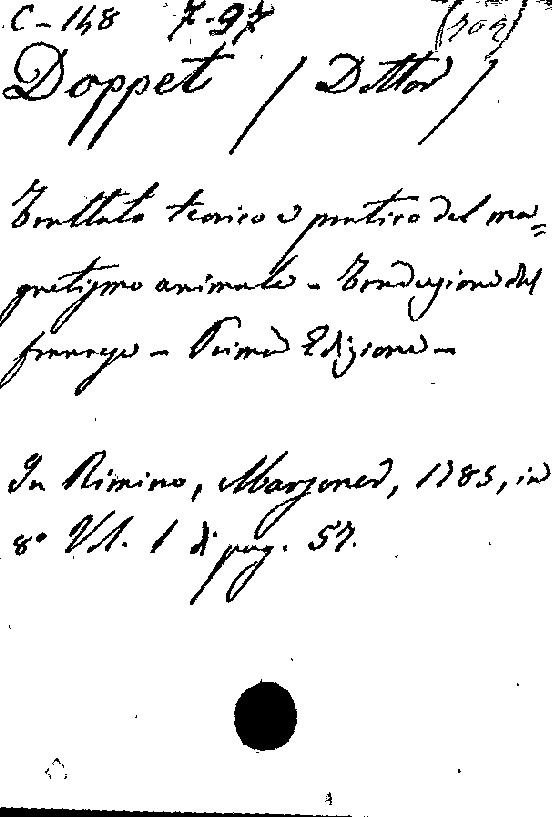 C-148 7-97
Doppet / Dottor /
Trattato teorico e pratico del ma=
gnetismo animale - Traduzione del
francese - Prima Edizione -
In Rimino, Marsoner, 1785, in
8° Vol. 1 di pag. 57.